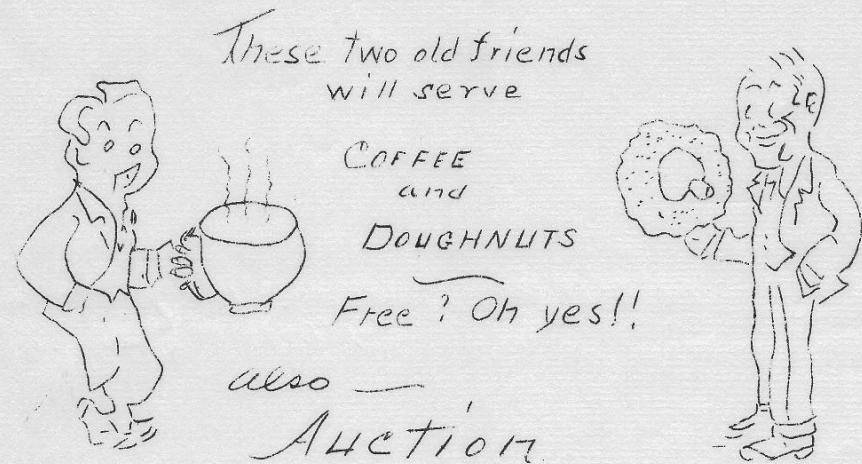 These two old friends
will serve
COFFEE
and
DOUGHNUTS
Free? Oh yes!!
also —
Auction